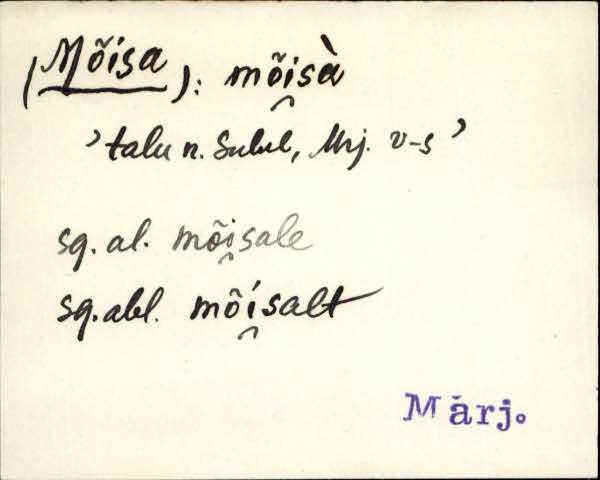 (Mõisa): mõi̯sà
’talu n. Sulul, Mrj. v-s’
sg. al. mõi̯sale
sg. abl. mõi̯salt
Märj.